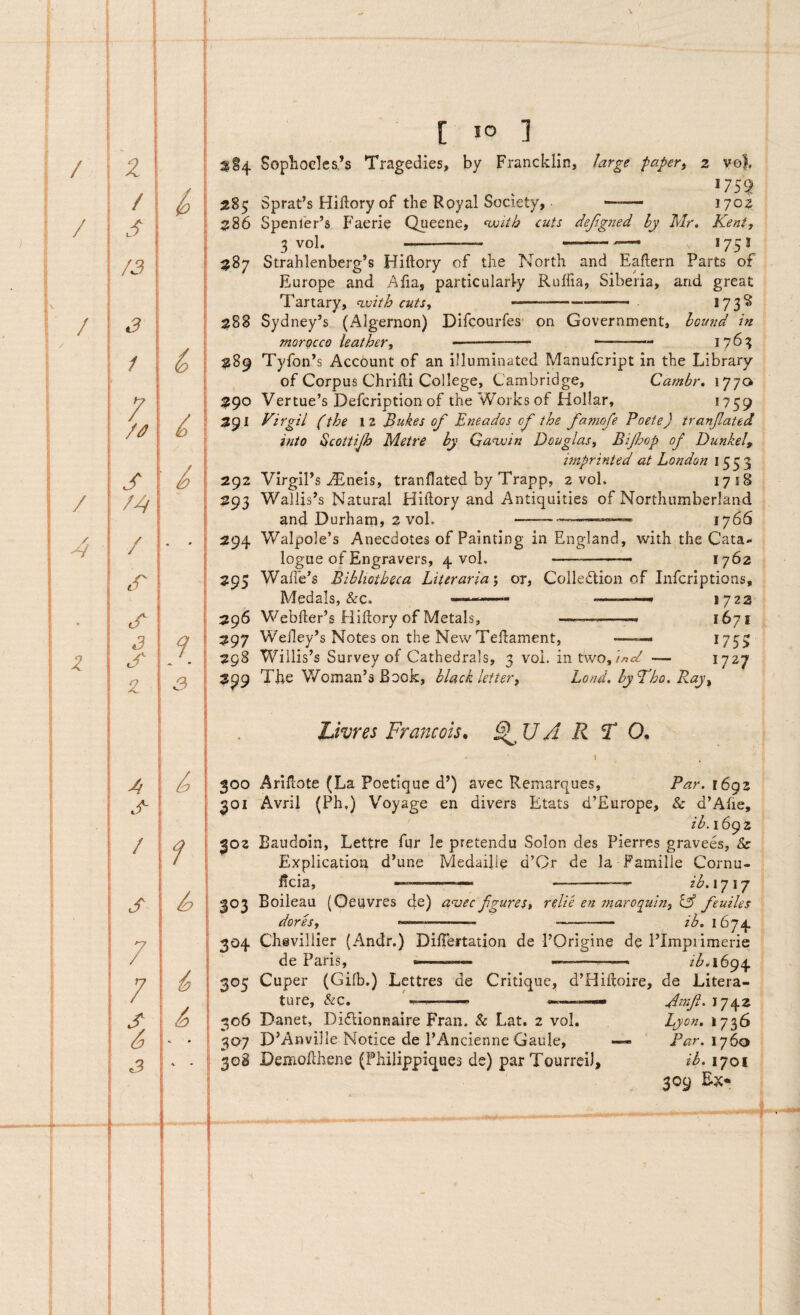 [ 10 ]
/ 2 284 Sophocles's Tragedies, by Francklin, large paper, 2 vol.
1759
/ 6 285 Sprat's Hiſtory of the Royal Society, —— 1702
/ 5 286 Spenſer's Faerie Queene, with cuts deſigned by Mr. Kent,
3 vol. —— —— 1751
13 287 Strahlenberg's Hiſtory of the North and Eaſtern Parts of
Europe and Aſia, particularly Ruſſia, Siberia, and great
Tartary, with cuts, —— 1738
/ 3 288 Sydney's (Algernon) Diſcourſes on Government, bound in
morocco leather, —— —— 1763
1 6 289 Tyſon's Account of an illuminated Manuſcript in the Library
of Corpus Chriſti College, Cambridge, Cambr. 1770
7 290 Vertue's Deſcription of the Works of Hollar, 1759
10 6 291 Virgil (the 12 Bukes of Eneados of the famoſe Poete) tranſlated
into Scottiſh Metre by Gawin Douglas, Biſhop of Dunkel,
imprinted at London 1553
5 6 292 Virgil's Æneis, tranſlated by Trapp, 2 vol. 1718
/ 14 293 Wallis's Natural Hiſtory and Antiquities of Northumberland
and Durham, 2 vol. —— 1766
4 / - - 294 Walpole's Anecdotes of Painting in England, with the Cata-
logue of Engravers, 4 vol. —— 1762
5 295 Waſſe's Bibliotheca Literaria; or, Collection of Inſcriptions,
Medals, &c. —— —— 1722
5 296 Webſter's Hiſtory of Metals, —— 1671
3 9 297 Weſley's Notes on the New Teſtament, —— 1755
2 5 - - 298 Willis's Survey of Cathedrals, 3 vol. in two, incl — 1727
2 3 299 The Woman's Book, black letter, Lond. by Tho. Ray,
Livres Francois. QUARTO.
4 6 300 Ariſtote (La Poetique d') avec Remarques, Par. 1692
5 301 Avril (Ph.) Voyage en divers Etats d'Europe, & d'Aſie,
ib. 1692
1 9 302 Baudoin, Lettre ſur le pretendu Solon des Pierres graveés, &
Explication d'une Medaille d'Or de la Famille Cornu-
ficia, —— —— ib. 1717
5 6 303 Boileau (Oeuvres de) avec figures, relié en maroquin, & feuiles
dorés, —— —— ib. 1674
7 304 Chevillier (Andr.) Diſſertation de l'Origine de l'Imprimerie
de Paris, —— —— ib. 1694
7 6 305 Cuper (Giſb.) Lettres de Critique, d'Hiſtoire, de Litera-
ture, &c. —— —— Amſt. 1742
5 6 306 Danet, Dictionnaire Fran. & Lat. 2 vol. Lyon. 1736
6 - - 307 D'Anville Notice de l'Ancienne Gaule, — Par. 1760
3 - - 308 Demoſthene (Philippiques de) par Tourreil, ib. 1701
309 Ex-